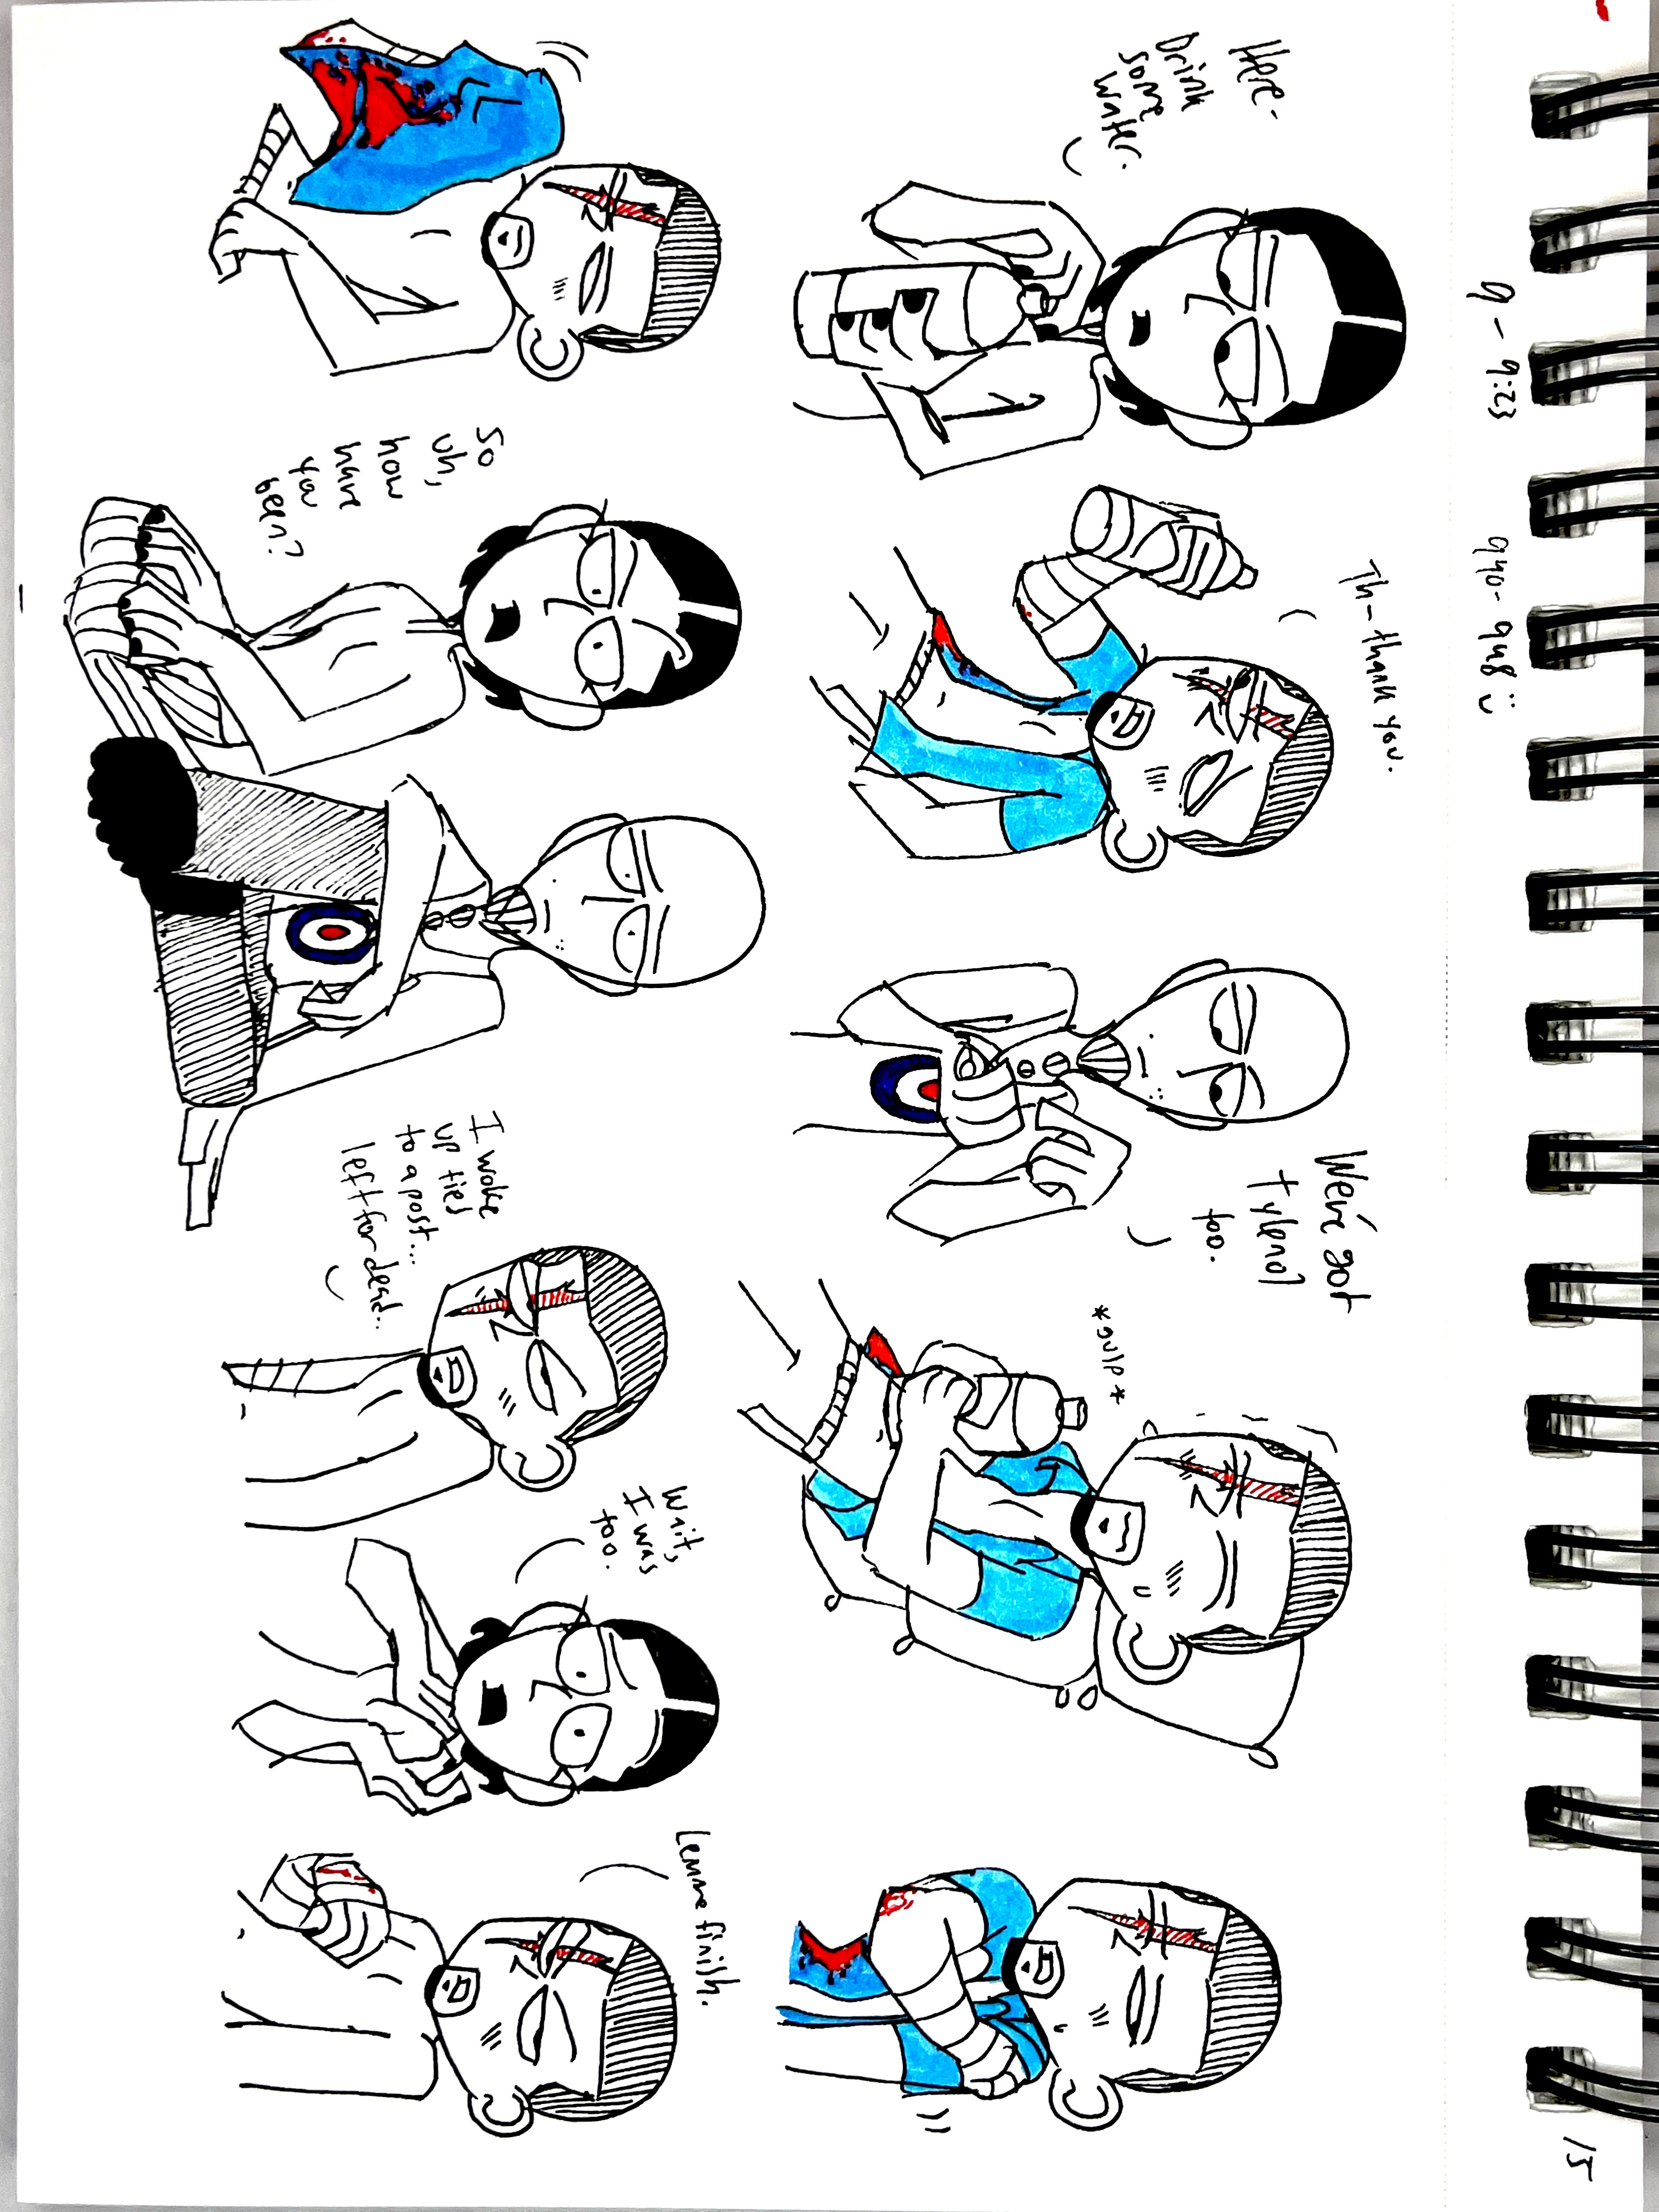 15
9 - 9:23
940- 948
Here-
Drink
some
water.
Th- thank you.
We've got
tylenol
too.
*gulp*
So
uh,
how
have
you
been?
I woke
up tied
to a post...
left for dead..
Wait,
I was
too.
Lemme finish.